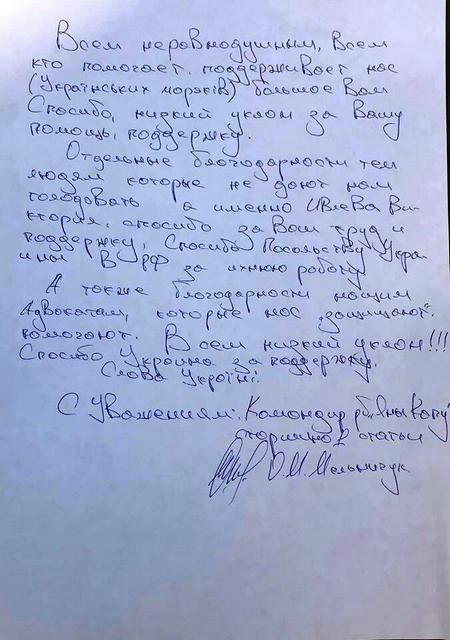 Всем неравнодушным, Всем
кто помогает, поддерживает нас
(Українських моряків) большое Вам
Спасибо, низкий уклон за Вашу
помощь, поддержку.
Отдельные благодарности тем
людям которые не дают нам
голодовать а именно Ивлева Ви-
ктория, спасибо за Ваш труд и
поддержку, Спасибо Посольству Укра
ины В РФ за ихнюю работу
А также благодарности нашим
Адвокатам, которые нас „защищают"
помогают. Всем низкий уклон!!!
Спасибо Украина за поддержку.
Слава Україні!
С Уважениям: Командир рб „Яны Капу"
старшина 2 статьи
О.М. Мельничук